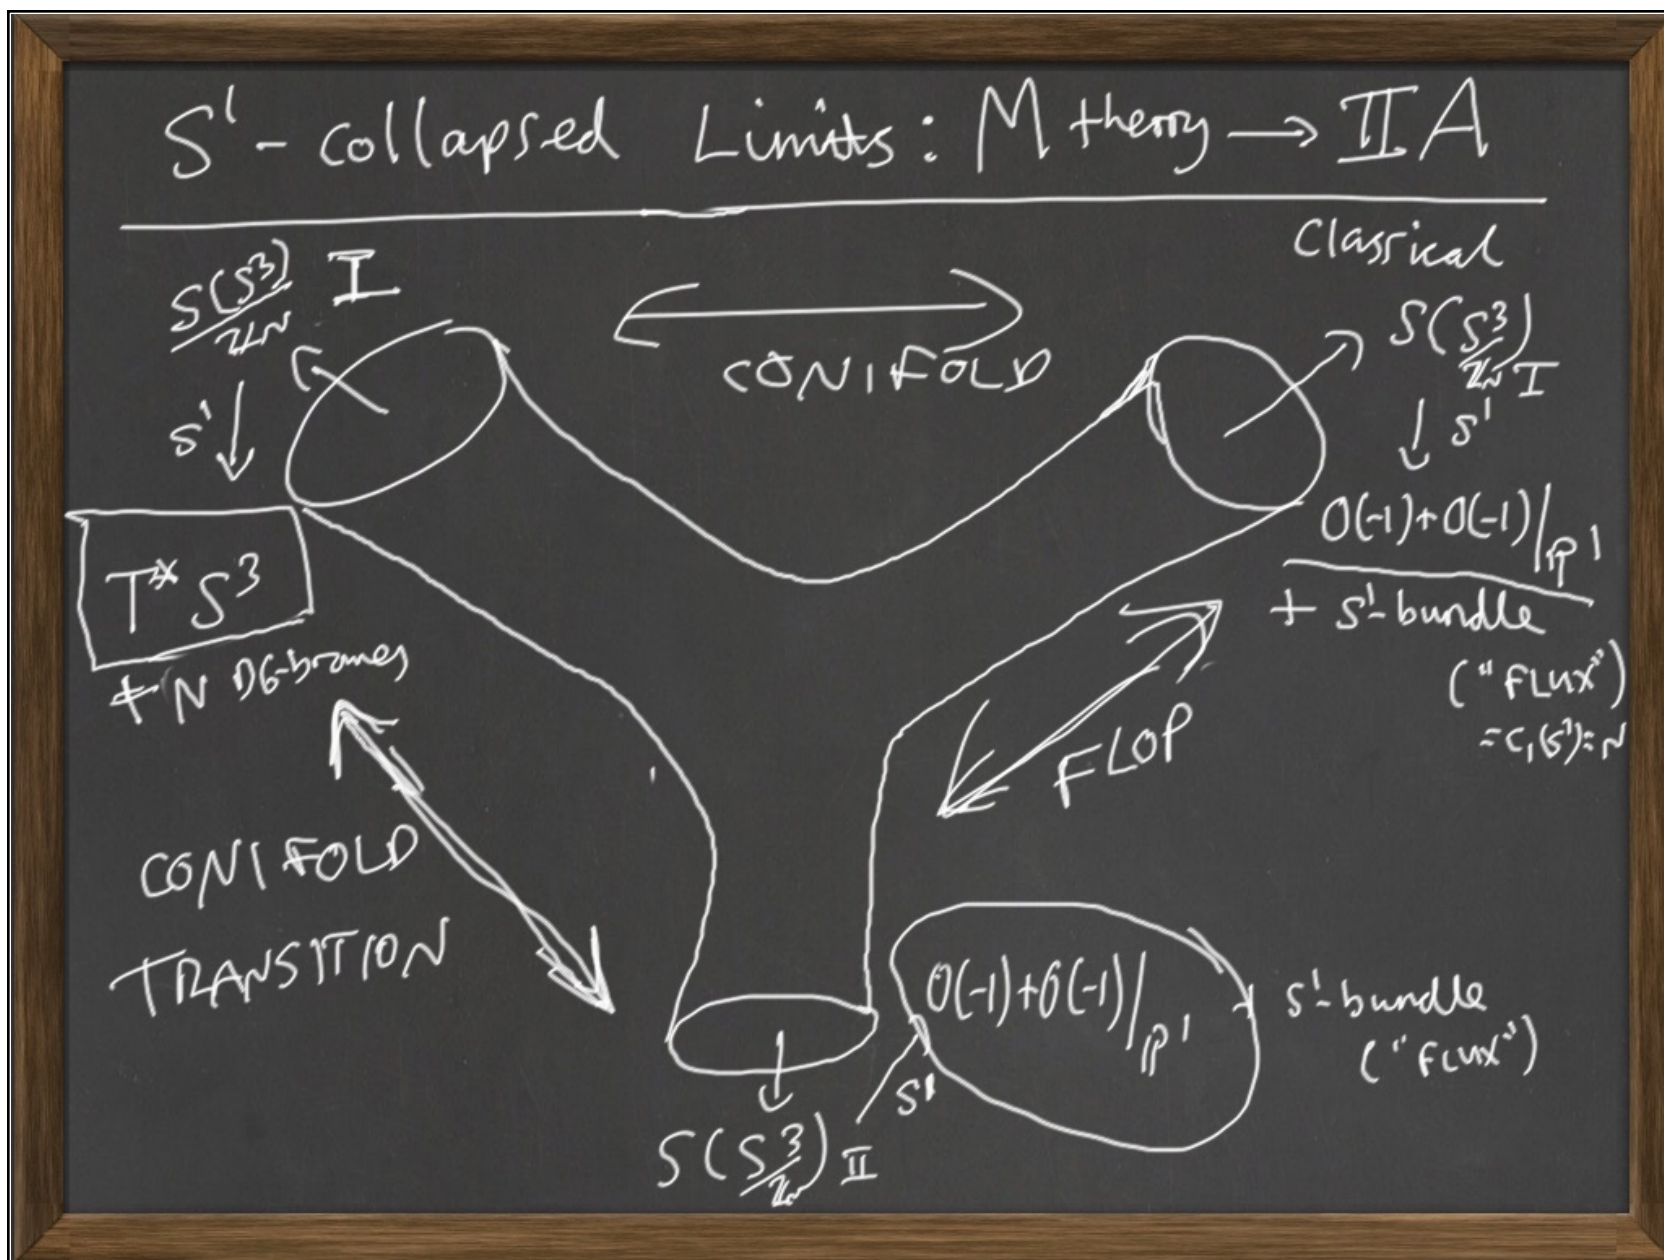 S¹-collapsed Limits: M theory → IIA
Classical
S(S³)/ℤN I
S¹ ↓
CONIFOLD
S(S³/ℤN) I
↓ S¹
O(-1)+O(-1)/ℙ¹
+ S¹-bundle
("FLUX")
= C₁(S¹)=N
T*S³
+ N D6-branes
FLOP
CONIFOLD
TRANSITION
O(-1)+O(-1)/ℙ¹
S¹-bundle
("FLUX")
S¹
S(S³/ℤN) II